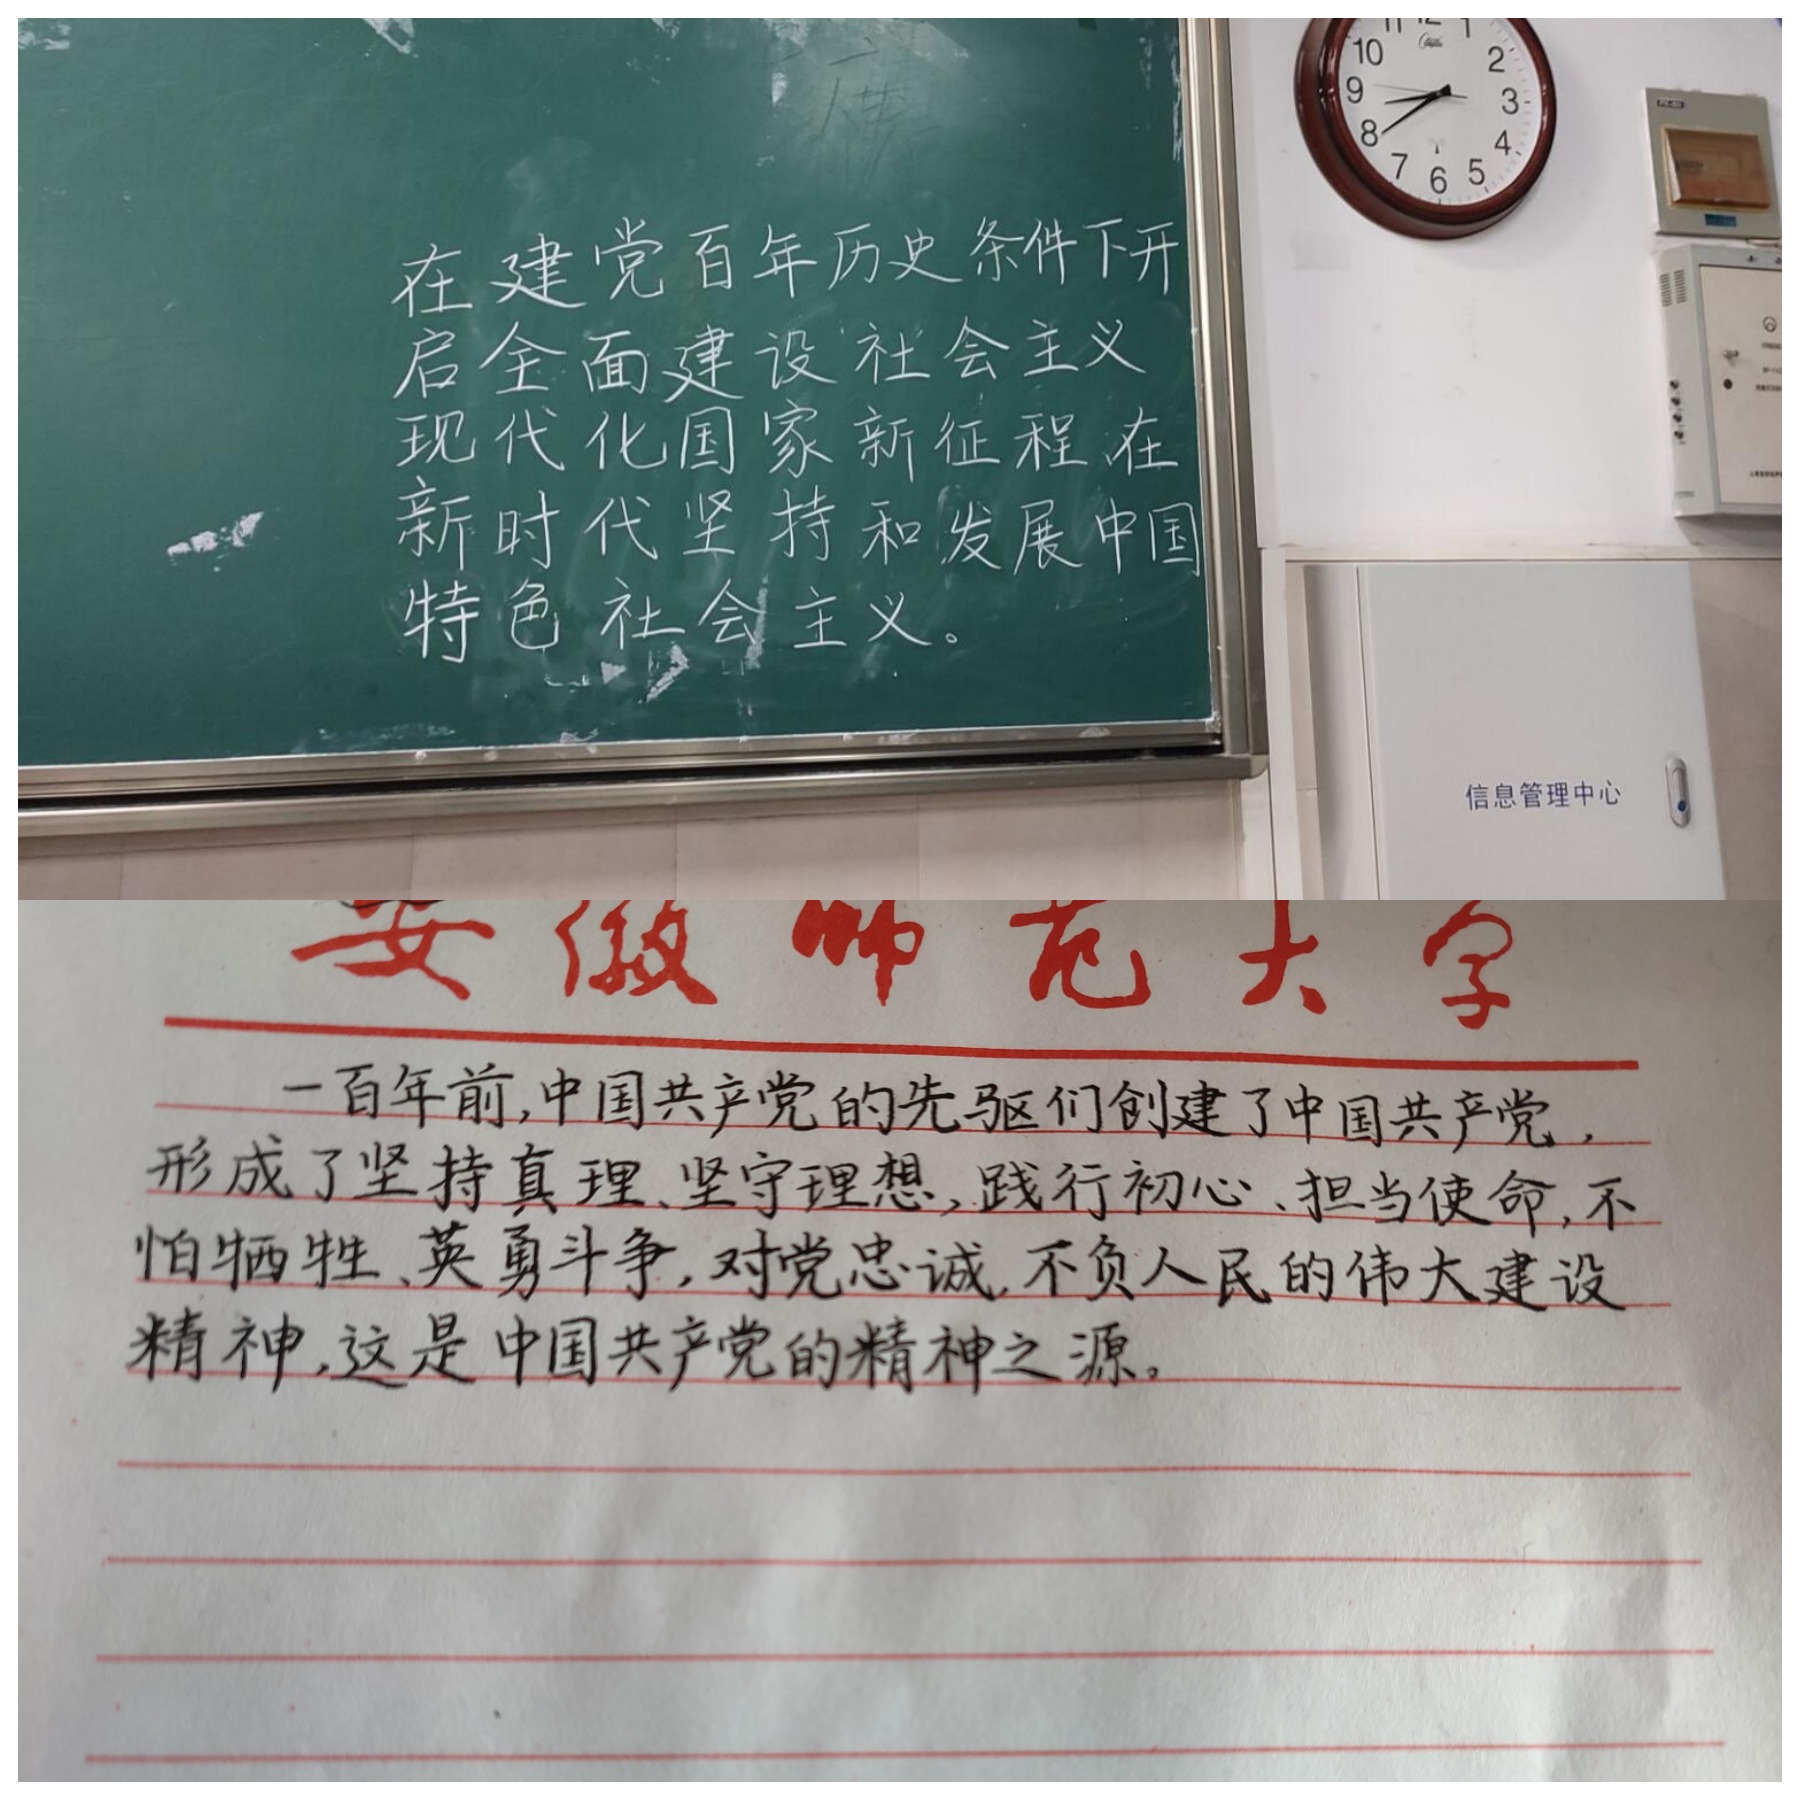 在建党百年历史条件下开
启全面建设社会主义
现代化国家新征程、在
新时代坚持和发展中国
特色社会主义。
11 12 1
10 2
9 3
8 4
7 6 5
信息管理中心
安徽师范大学
一百年前,中国共产党的先驱们创建了中国共产党,
形成了坚持真理、坚守理想,践行初心、担当使命,不
怕牺牲、英勇斗争,对党忠诚、不负人民的伟大建设
精神,这是中国共产党的精神之源。